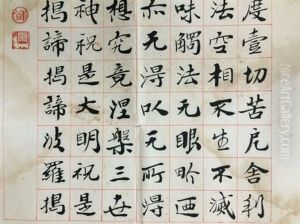 度壹切苦厄舍利
法空相不生不滅
味觸法无眼界迺
亦无得以无所得
想究竟涅槃三世
神祝是大明祝是
揭諦揭諦波羅揭